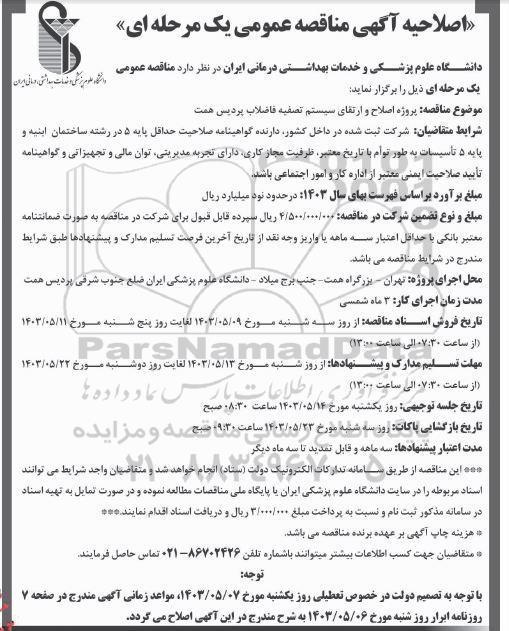 «اصلاحیه آگهی مناقصه عمومی یک مرحله ای»
دانشگاه علوم پزشکی و خدمات بهداشتی، درمانی ایران
دانشگاه علوم پزشکی و خدمات بهداشتی درمانی ایران در نظر دارد مناقصه عمومی
یک مرحله ای ذیل را برگزار نماید:
موضوع مناقصه: پروژه اصلاح و ارتقای سیستم تصفیه فاضلاب پردیس همت
شرایط متقاضیان: شرکت ثبت شده در داخل کشور، دارنده گواهینامه صلاحیت حداقل پایه ۵ در رشته ساختمان ابنیه و
پایه ۵ تأسیسات به طور توأم با تاریخ معتبر، ظرفیت مجاز کاری، دارای تجربه مدیریتی، توان مالی و تجهیزاتی و گواهینامه
تأیید صلاحیت ایمنی معتبر از اداره کار و امور اجتماعی باشد.
مبلغ برآورد براساس فهرست بهای سال ۱۴۰۳: درحدود نود میلیارد ریال
مبلغ و نوع تضمین شرکت در مناقصه: ۴/۵۰۰/۰۰۰/۰۰۰ ریال سپرده قابل قبول برای شرکت در مناقصه به صورت ضمانتنامه
معتبر بانکی با حداقل اعتبار سه ماهه یا واریز وجه نقد از تاریخ آخرین فرصت تسلیم مدارک و پیشنهادها طبق شرایط
مندرج در شرایط مناقصه می باشد.
محل اجرای پروژه: تهران – بزرگراه همت- جنب برج میلاد – دانشگاه علوم پزشکی ایران ضلع جنوب شرقی پردیس همت
مدت زمان اجرای کار: ۳ ماه شمسی
تاریخ فروش اسناد مناقصه: از روز سه شنبه مورخ ۱۴۰۳/۰۵/۰۹ لغایت روز پنج شنبه مورخ ۱۴۰۳/۰۵/۱۱
(از ساعت ۰۷:۳۰ الی ساعت ۱۳:۰۰)
مهلت تسلیم مدارک و پیشنهادها: از روز شنبه مورخ ۱۴۰۳/۰۵/۱۳ لغایت روز دوشنبه مورخ ۱۴۰۳/۰۵/۲۲
(از ساعت ۰۷:۳۰ الی ساعت ۱۳:۰۰)
تاریخ جلسه توجیهی: روز یکشنبه مورخ ۱۴۰۳/۰۵/۱۴ ساعت ۰۸:۳۰ صبح
تاریخ بازگشایی پاکات: روز سه شنبه مورخ ۱۴۰۳/۰۵/۲۳ ساعت ۰۹:۳۰ صبح
مدت اعتبار پیشنهادها: سه ماهه و قابل تمدید تا سه ماه دیگر
*** این مناقصه از طریق سامانه تدارکات الکترونیک دولت (ستاد) انجام خواهد شد و متقاضیان واجد شرایط می توانند
اسناد مربوطه را در سایت دانشگاه علوم پزشکی ایران یا پایگاه ملی مناقصات مطالعه نموده و در صورت تمایل به تهیه اسناد
در سامانه مذکور ثبت نام و نسبت به پرداخت مبلغ ۳/۰۰۰/۰۰۰ ریال و دریافت اسناد اقدام نمایند.***
* هزینه چاپ آگهی بر عهده برنده مناقصه می باشد.
* متقاضیان جهت کسب اطلاعات بیشتر میتوانند باشماره تلفن ۸۶۷۰۲۴۲۶-۰۲۱ تماس حاصل فرمایند.
توجه:
با توجه به تصمیم دولت در خصوص تعطیلی روز یکشنبه مورخ ۱۴۰۳/۰۵/۰۷، مواعد زمانی آگهی مندرج در صفحه ۷
روزنامه ابرار روز شنبه مورخ ۱۴۰۳/۰۵/۰۶ به شرح مندرج در این آگهی اصلاح می گردد.
ParsNamadData